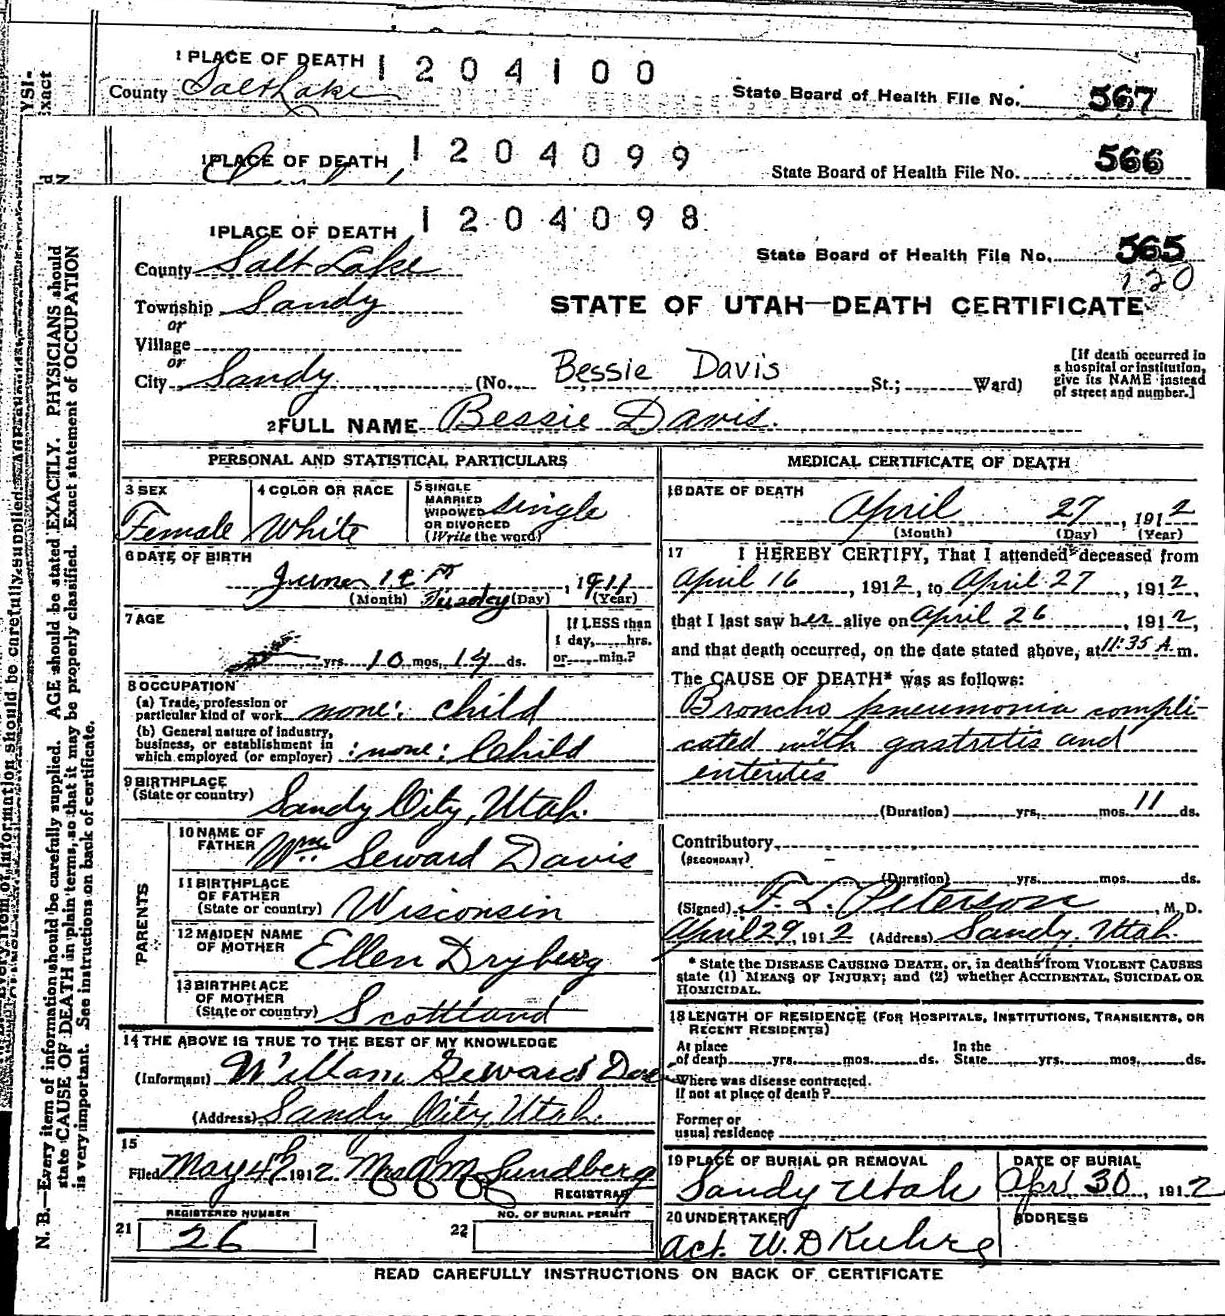 YSI-
Exact
1 PLACE OF DEATH 1204100
County Salt Lake
State Board of Health File No. 567
1 PLACE OF DEATH 1204099
State Board of Health File No. 566
1 PLACE OF DEATH 1204098
State Board of Health File No. 565
120
County Salt Lake
Township Sandy
or
Village
or
City Sandy (No. Bessie Davis St.; Ward)
STATE OF UTAH—DEATH CERTIFICATE
[If death occurred in
a hospital or institution,
give its NAME instead
of street and number.]
2 FULL NAME Bessie Davis.
PERSONAL AND STATISTICAL PARTICULARS
3 SEX
Female
4 COLOR OR RACE
White
5 SINGLE
MARRIED
WIDOWED
OR DIVORCED
(Write the word)
single
6 DATE OF BIRTH
1911
(Month) (Day) (Year)
7 AGE
yrs. 10 mos. 14 ds.
If LESS than
1 day, hrs.
or min.?
8 OCCUPATION
(a) Trade, profession or
particular kind of work none: child
(b) General nature of industry,
business, or establishment in
which employed (or employer) : none: Child
9 BIRTHPLACE
(State or country) Sandy City, Utah.
PARENTS
10 NAME OF
FATHER Wm Seward Davis
11 BIRTHPLACE
OF FATHER
(State or country) Wisconsin
12 MAIDEN NAME
OF MOTHER Ellen Dryberg
13 BIRTHPLACE
OF MOTHER
(State or country) Scottland
14 THE ABOVE IS TRUE TO THE BEST OF MY KNOWLEDGE
(Informant) William Seward Davis
(Address) Sandy City, Utah.
15
Filed May 4th 1912. Mrs A M Sundberg
REGISTRAR
21 REGISTERED NUMBER
26
22 NO. OF BURIAL PERMIT
MEDICAL CERTIFICATE OF DEATH
16 DATE OF DEATH
April 27, 1912
(Month) (Day) (Year)
17 I HEREBY CERTIFY, That I attended deceased from
April 16, 1912, to April 27, 1912,
that I last saw her alive on April 26, 1912,
and that death occurred, on the date stated above, at 11:35 A. m.
The CAUSE OF DEATH* was as follows:
Broncho pneumonia compli-
cated with gastritis and
enteritis
(Duration) yrs. mos. 11 ds.
Contributory
(SECONDARY)
(Duration) yrs. mos. ds.
(Signed) F. L. Peterson, M. D.
April 29, 1912 (Address) Sandy, Utah.
* State the DISEASE CAUSING DEATH, or, in deaths from VIOLENT CAUSES
state (1) MEANS OF INJURY; and (2) whether ACCIDENTAL, SUICIDAL OR
HOMICIDAL.
18 LENGTH OF RESIDENCE (FOR HOSPITALS, INSTITUTIONS, TRANSIENTS, OR
RECENT RESIDENTS)
At place
of death yrs. mos. ds.
In the
State yrs. mos. ds.
Where was disease contracted.
If not at place of death?
Former or
usual residence
19 PLACE OF BURIAL OR REMOVAL
Sandy Utah
DATE OF BURIAL
Apr 30, 1912
20 UNDERTAKER
Act. W. D Kuhre
ADDRESS
READ CAREFULLY INSTRUCTIONS ON BACK OF CERTIFICATE
N. B.—Every item of information should be carefully supplied. AGE should be stated EXACTLY. PHYSICIANS should
state CAUSE OF DEATH in plain terms, so that it may be properly classified. Exact statement of OCCUPATION
is very important. See instructions on back of certificate.